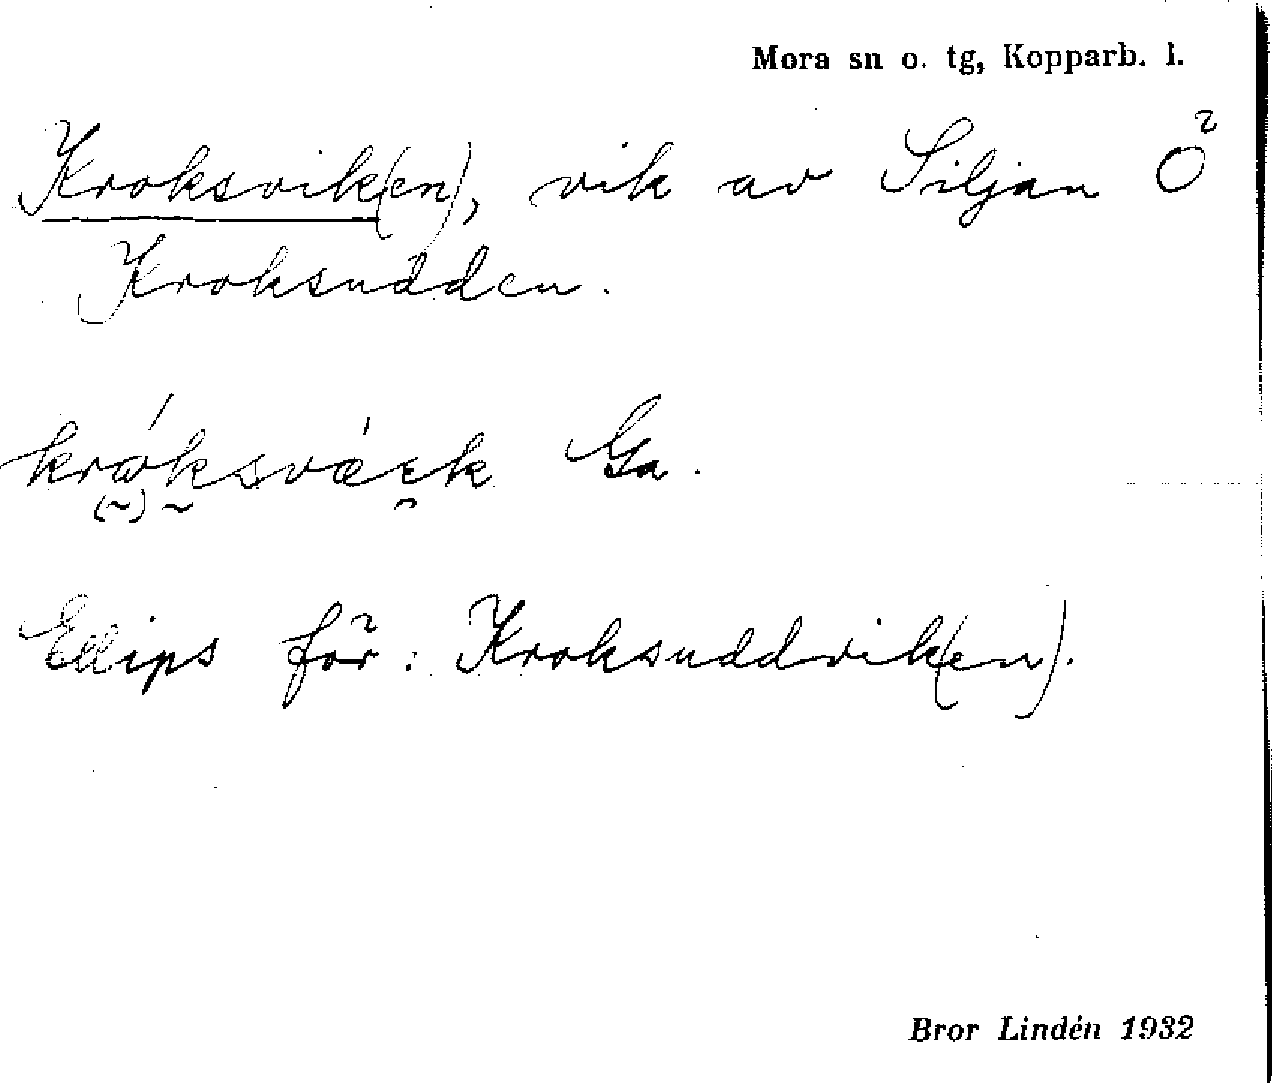 Mora sn o. tg, Kopparb. l.
Kroksvik(en), vik av Siljan Ö
Kroksudden.
Ga.
Ellips för: Kroksuddvik(en).
Bror Lindén 1932